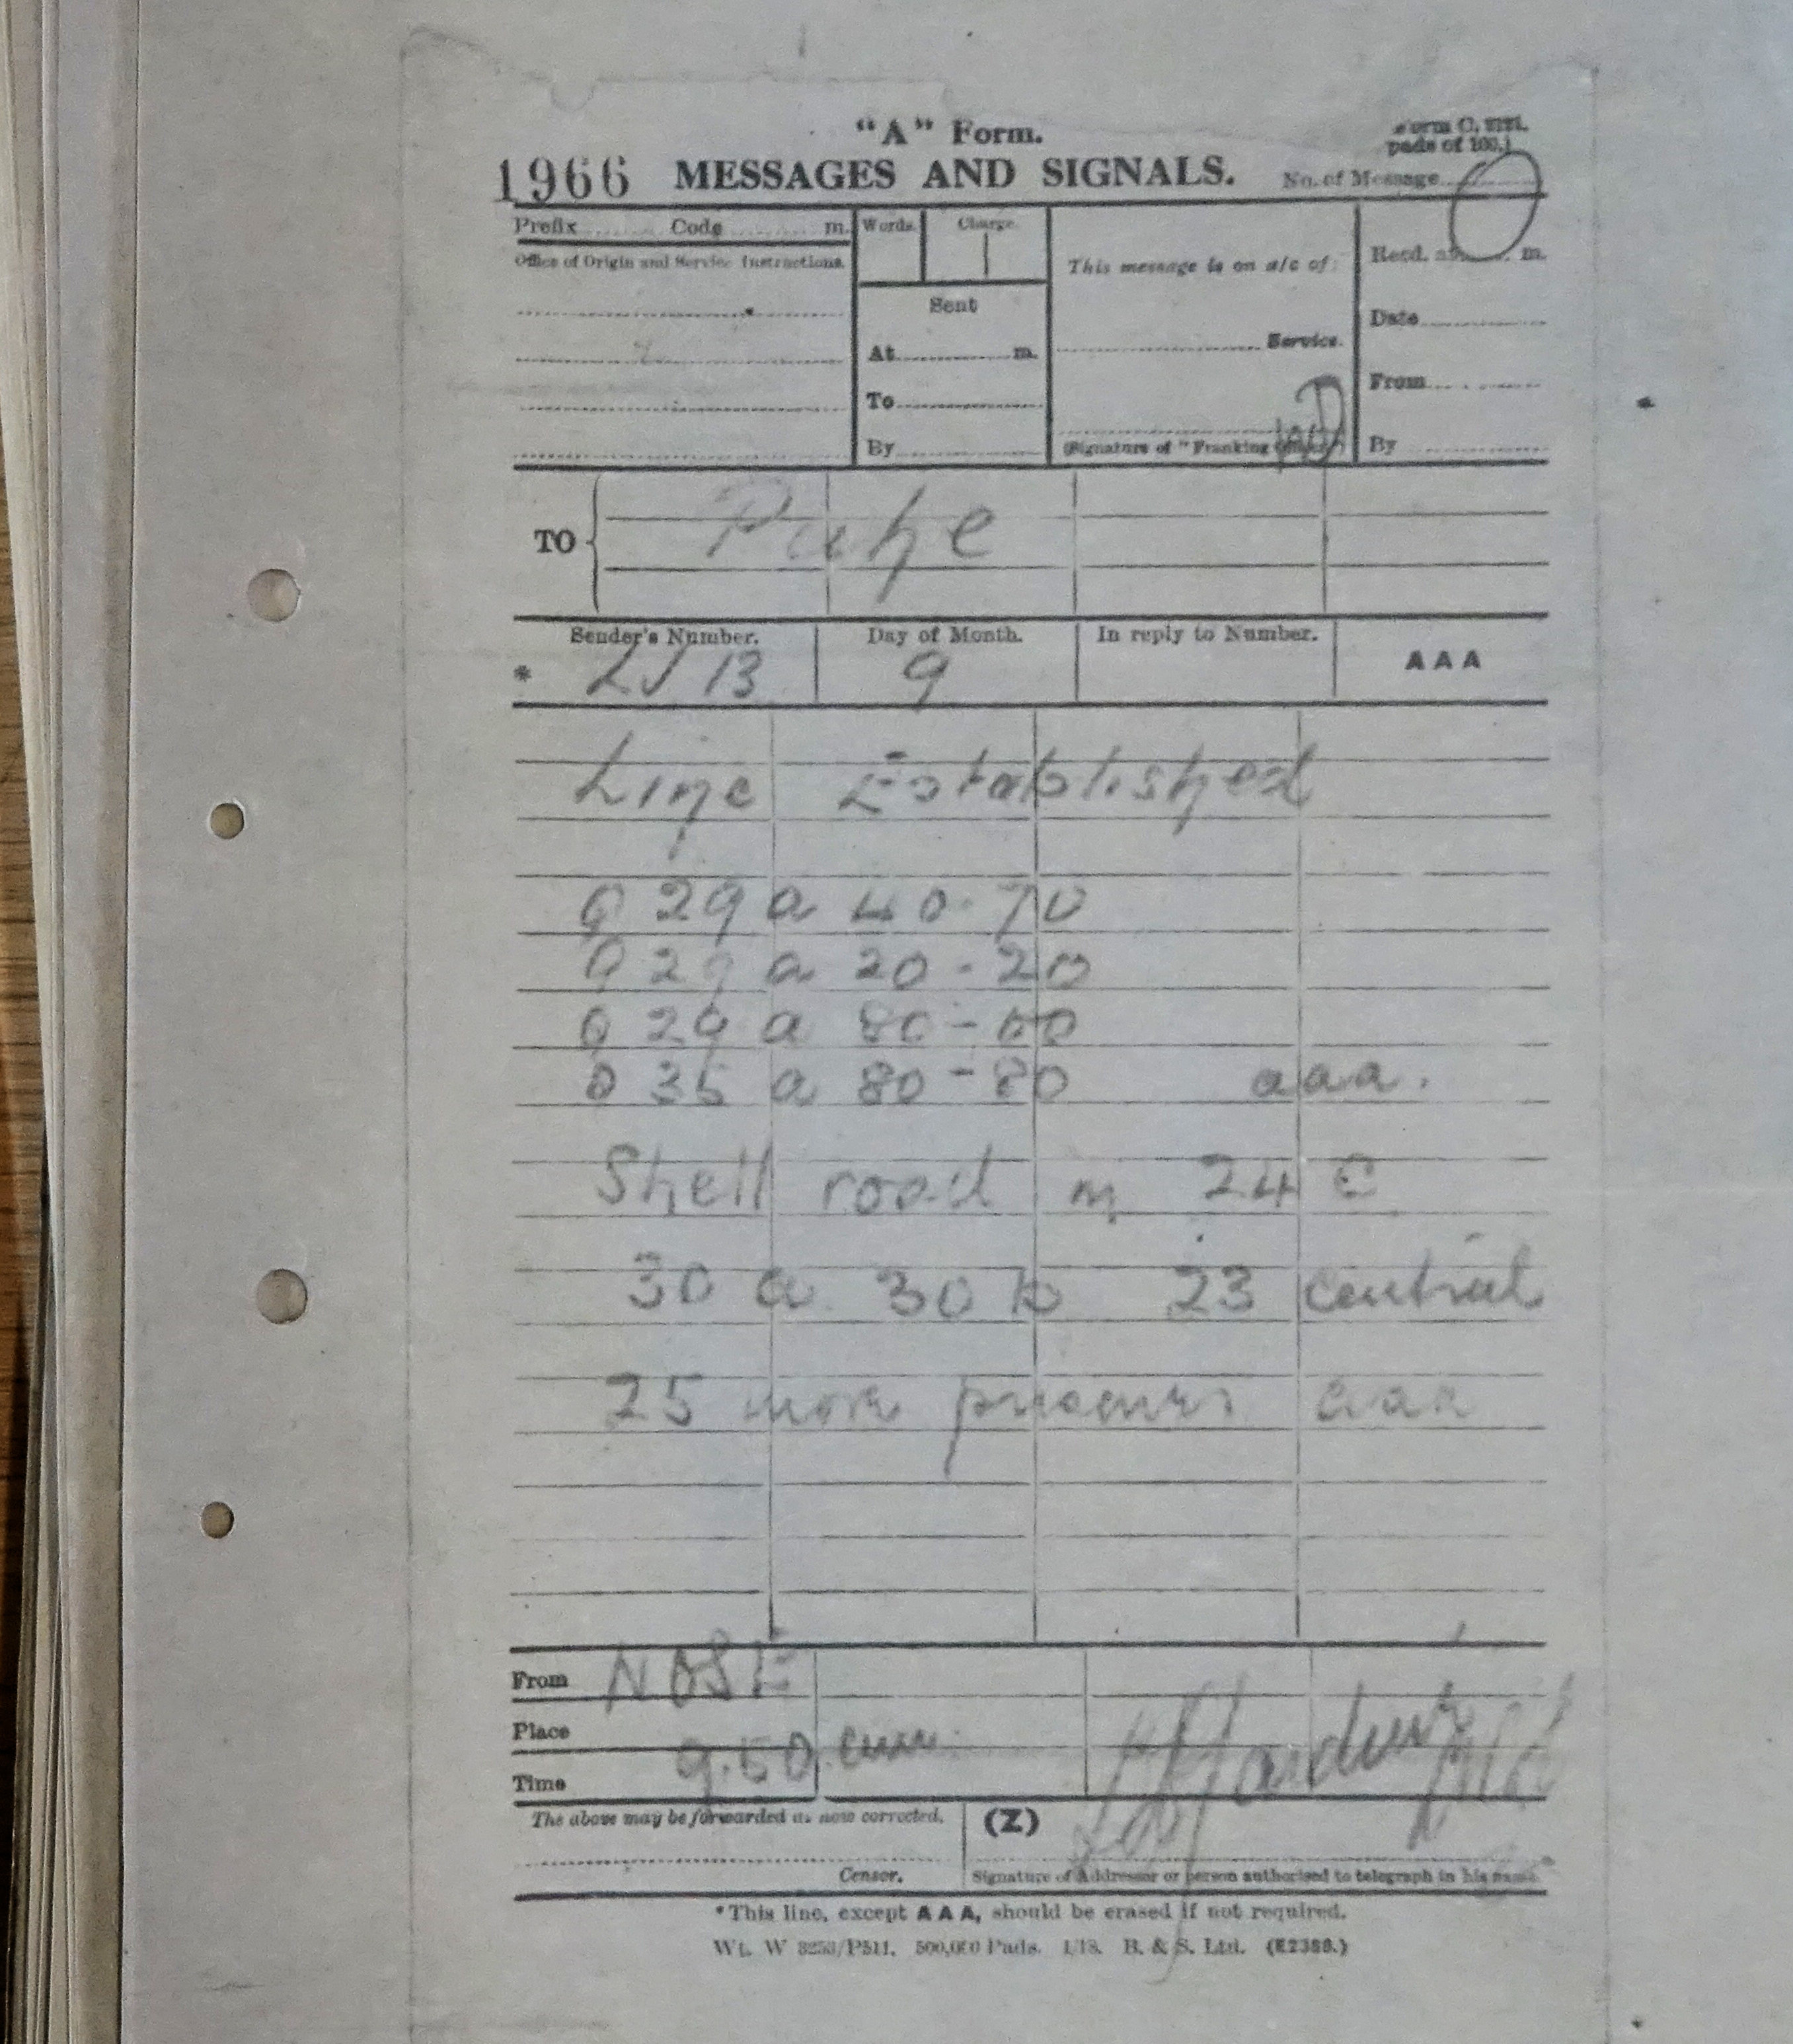 "A" Form.
pads of 100.)
1966 MESSAGES AND SIGNALS. No. of Message
Prefix Code m. Words. Charge.
Office of Origin and Service Instructions.
This message is on a/c of:
Recd. at m.
Sent
Date
At m.
Service.
To
From
By
(Signature of "Franking Officer")
By
TO
Sender's Number. Day of Month. In reply to Number.
* LJ 13 9 AAA
Line Established
Q 29 a 40.70
Q 29 a 20-20
Q 29 a 80-60
Q 35 a 80-80 aaa.
Shell road in 24 C
30 a 30 b 23 central
25 more prisoners aaa
From NOSE
Place
9.50 am.
Time
The above may be forwarded as now corrected. (Z)
Censor. Signature of Addressor or person authorised to telegraph in his name.
*This line, except AAA, should be erased if not required.
Wt. W 3253/P511. 500,000 Pads. 1/18. B. & S. Ltd. (E2388.)